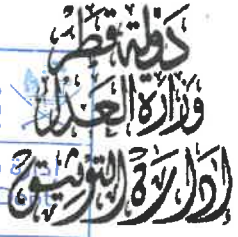 دَوْلَة قَطَر
وَزَارَة العَدْل
إِدَارَة التَّوْثِيق